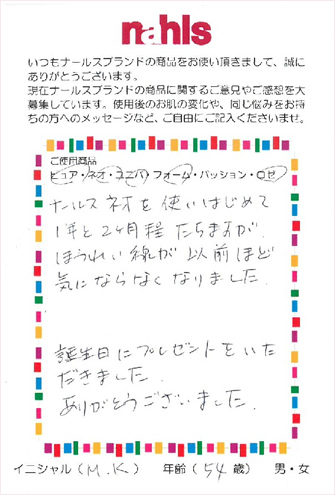 nahls
いつもナールスブランドの商品をお使い頂きまして、誠に
ありがとうございます。
現在ナールスブランドの商品に関するご意見やご感想を大
募集しています。使用後のお肌の変化や、同じ悩みをお持
ちの方へのメッセージなど、ご自由にご記入くださいませ。
ご使用商品
ピュア・ネオ・ユニバ・フォーム・パッション・ロゼ
ナールス ネオを使いはじめて
1年と2ヶ月程 たちますが
ほうれい線が 以前ほど
気にならなくなりました
誕生日にプレゼントをいた
だきました。
ありがとうございました。
イニシャル(M.K) 年齢(54歳) 男・女